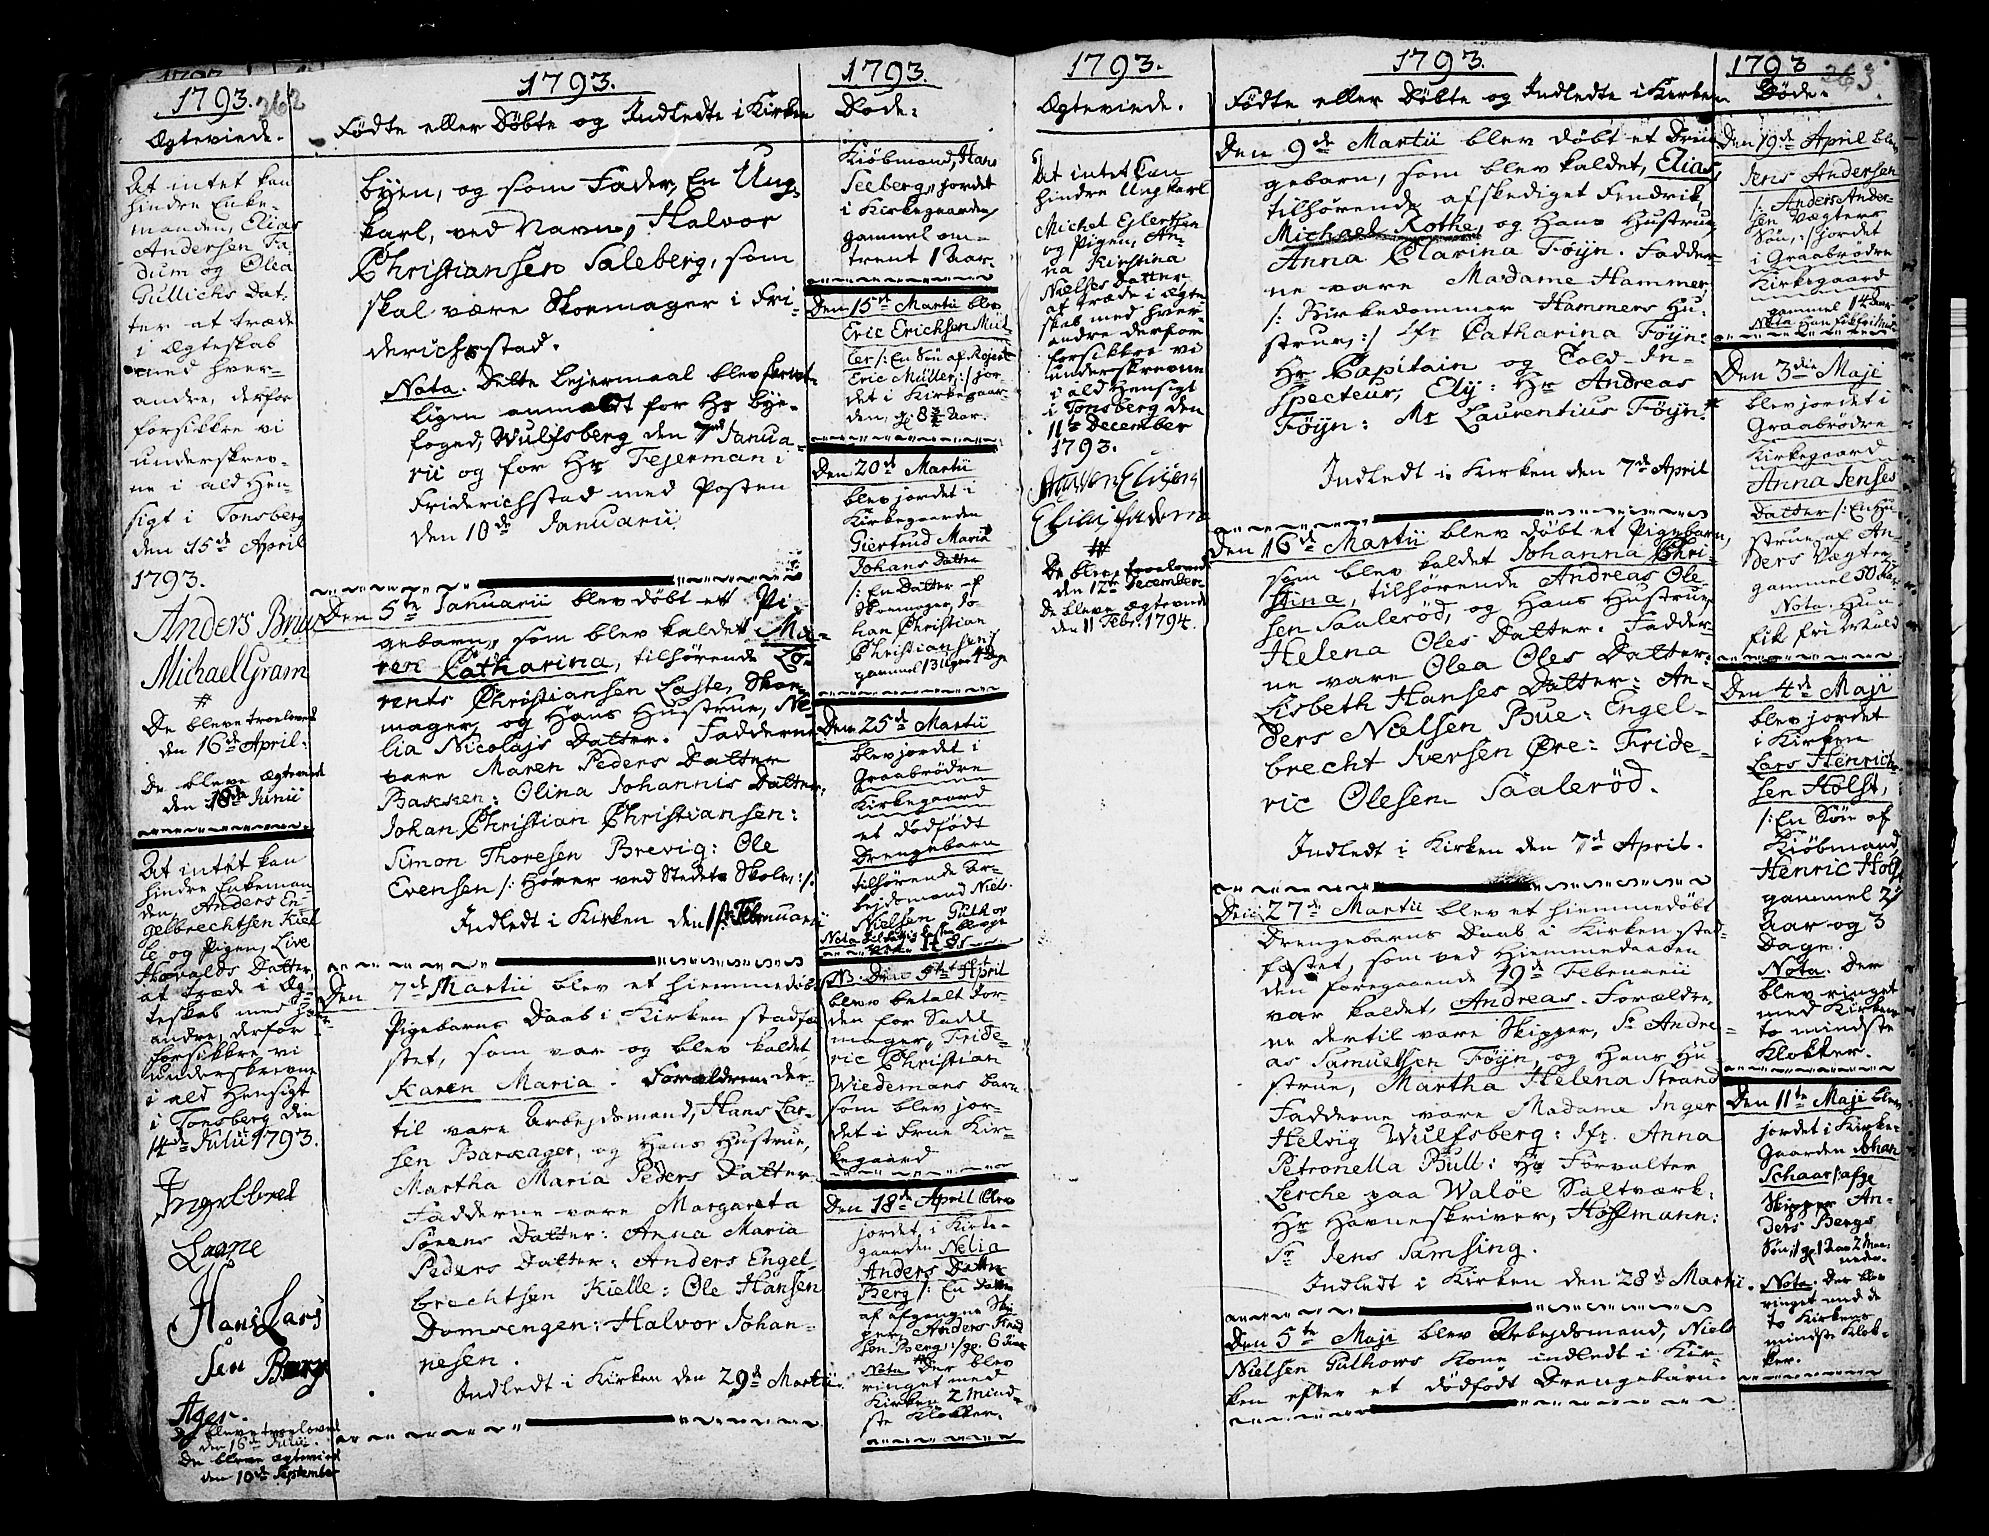 1793.
262
Ægteviede.
At intet kan
hindre Enke-
manden, Elias
Andersen Fa-
dum og Olea
Gullichs Dat-
ter at træde
i Ægteskab
med hver-
andre, derfor
forsikkre vi
underskrev-
ne i ald Hen-
sigt i Tonsberg
den 15de April
1793.
Anders Bruu
Michael Gram
#
De bleve troelovede
den 16de April:
De bleve Ægteviede
den 18de Junii
At intet kan
hindre Enkeman
den, Anders En-
gelbrechtsen Kiel-
le og Pigen, Live
Torvalds Datter,
at træde i Æg-
teskab med hver-
andre, derfor
forsikkre vi
underskrevne
i ald Hensigt
i Tonsberg den
14de Julii 1793.
Ingelbret
Hans Lars
sen Barg
Ager.
De bleve troelovede
den 16de Julii.
De bleve Ægteviede
den 10de September
1793.
Fødte eller Døbte og Indledte i Kirken
byen, og som Fader, En Ung-
karl, ved Navn, Halvor
Christiansen Saleberg, som
skal være Skoemager i Fri-
derichstad.
Nota. Dette Lejermaal blev skrivt-
ligen anmeldt for Hr. Bye-
foged, Wulfsberg den 7de Janua-
rii og for Hr. Fejerman i
Friderichstad med Posten
den 10de Januarii.
Den 5te Januarii blev døbt et Pi-
gebarn, som blev kaldet Ma-
ren Catharina, tilhørende Lo-
rents Christiansen Laste, Skoe-
mager, og Hans Hustrue, Ne-
lia Nicolajs Datter. Fadderne
vare Maren Peders Datter
Bakken: Olina Johannis Datter:
Johan Christian Christiansen:
Simon Thoresen Brevig: Ole
Evensen /: Hører ved Stedets Skole, :/.
Indledt i Kirken den 1ste Februarii
Den 7de Martii blev et hiemmedøbt
Pigebarns Daab i Kirken stadfæ-
stet, som var og blev kaldet
Karen Maria. Forældrene der-
til vare Arbejdsmand, Hans Lar-
sen Barkager, og Hans Hustrue,
Martha Maria Peders Datter
Fadderne vare Margareta
Sørens Datter: Anna Maria
Peders Datter: Anders Engel-
brechtsen Kielle: Ole Hansen
Domsengen: Halvor Johan-
nesen.
Indledt i Kirken den 29de Martii.
1793.
Døde:
Kiøbmand, Hans
Seeberg, jordet
i Kirkegaarden
gammel om-
trent 1 Aar.
Den 15de Martii blev
Eric Erichsen Mül-
ler /: En Søn af
Eric Müller, :/ jor-
det i Kirkegaar-
den, gl. 8 3/4 Aar.
Den 20de Martii
blev jordet i
Kirkegaarden
Giertrud Maria
Johans Datter
/: En Datter af
Skoemager, Jo-
han Christian
Christiansen
gammel 13 Uger 4 Dage
Den 25de Martii
blev jordet i
Graabrødre
Kirkegaard
et dødfødt
Drengebarn
tilhørende Ar-
bejdsmand Niels
Nielsen Guthov
NB. Den 5te April
blev betalt Jor-
den for Sadel
mager, Fride-
ric Christian
Wiedemans barn
som blev jor-
det i Frue Kir-
kegaard
Den 18de April blev
jordet i Kirke-
gaarden Nelia
Anders Datter
Berg /: En Datter
af afgangne Ski-
per, Anders
son Berg :/ gl. 6 Aar
Nota. Der blev
ringet med
Kirkens 2 mind-
ste Klokker.
1793.
Ægteviede.
At intet kan
hindre Ungkarl
Michel Ejlertsen
og Pigen, An-
na Kirstina
Nielses Datter
at træde i Ægte
skab med hver-
andre derfor
forsikkre vi
underskrevne
i ald Hensigt
i Tonsberg den
11te December
1793.
#
De bleve troelovede
den 12te December
De bleve Ægteviede
den 11 Febr. 1794.
1793.
Fødte eller Døbte og Indledte i Kirken
Den 9de Martii blev døbt et Dren-
gebarn, som blev kaldet, Elias,
tilhørende afskediget Fendrik,
Michael Rothe, og Hans Hustrue,
Anna Clarina Føyn. Fadder-
ne vare Madame Hammer
/: Birkedommer Hammers Hu-
strue, :/ Jfr. Catharina Føyn:
Hr. Capitain og Told-In-
specteur, Ely: Hr. Andreas
Føyn: Mr. Laurentius Føyn.
Indledt i Kirken den 7de April
Den 16de Martii blev døbt et Pigebarn,
som blev kaldet Johanna Chri-
stina, tilhørende Andreas Ole-
sen Saalerød, og Hans Hustrue,
Helena Oles Datter. Fadder-
ne vare Olea Oles Datter:
Lisbeth Hanses Datter: An-
ders Nielsen Bue: Engel-
brecht Iversen Øre: Fride-
ric Olesen Saalerød.
Indledt i Kirken den 7de April.
Den 27de Martii blev et hiemmedøbt
Drengebarns Daab i Kirken stad-
fæstet, som ved Hiemmedaaben
den foregaaende 19de Februarii
var kaldet, Andreas. Forældre-
ne dertil vare Skipper, Sr. Andre-
as Samuelsen Føyn, og Hans Hu-
strue, Martha Helena Strand
Fadderne vare Madame Inger
Helvig Wulfsberg: Jfr. Anna
Petronella Bull: Hr. Forvalter
Lerche paa Waløe Saltværk:
Hr. Havneskriver, Hoffmann:
Sr. Jens Samsing.
Indledt i Kirken den 28de Martii.
Den 5te Maji blev Arbejdsmand, Niels
Nielsen Guthows Kone indledt i Kir-
ken efter et dødfødt Drengebarn.
1793
263.
Døde.
Den 19de April blev
Jens Andersen
/: Anders Ander-
sen Vægters
Søn, :/ jordet
i Graabrødre
Kirkegaard
gammel 14 Aar
Nota. Han fik fri Muld
Den 3die Maji
blev jordet i
Graabrødre
Kirkegaard
Anna Jenses
Datter /: En Hu-
strue af An-
ders Vægter
gammel 50 Aar
Nota. Hun
fik fri Muld
Den 4de Maji
blev jordet
i Kirken
Lars Henrich-
sen Holst,
/: En Søn af
Kiøbmand,
Henric Holst
gammel 2
Aar og 3
Dage.
Nota. Der
blev ringet
med Kirkens
to mindste
Klokker.
Den 11te Maji blev
jordet i Kirke-
Gaarden Johan
Schaar /: afg.
Skipper An-
ders Bergs
Søn :/ gl. 1 Aar 2 Maa-
neder.
Nota. Der blev
ringet med de
to Kirkens
mindste Klok-
ker.